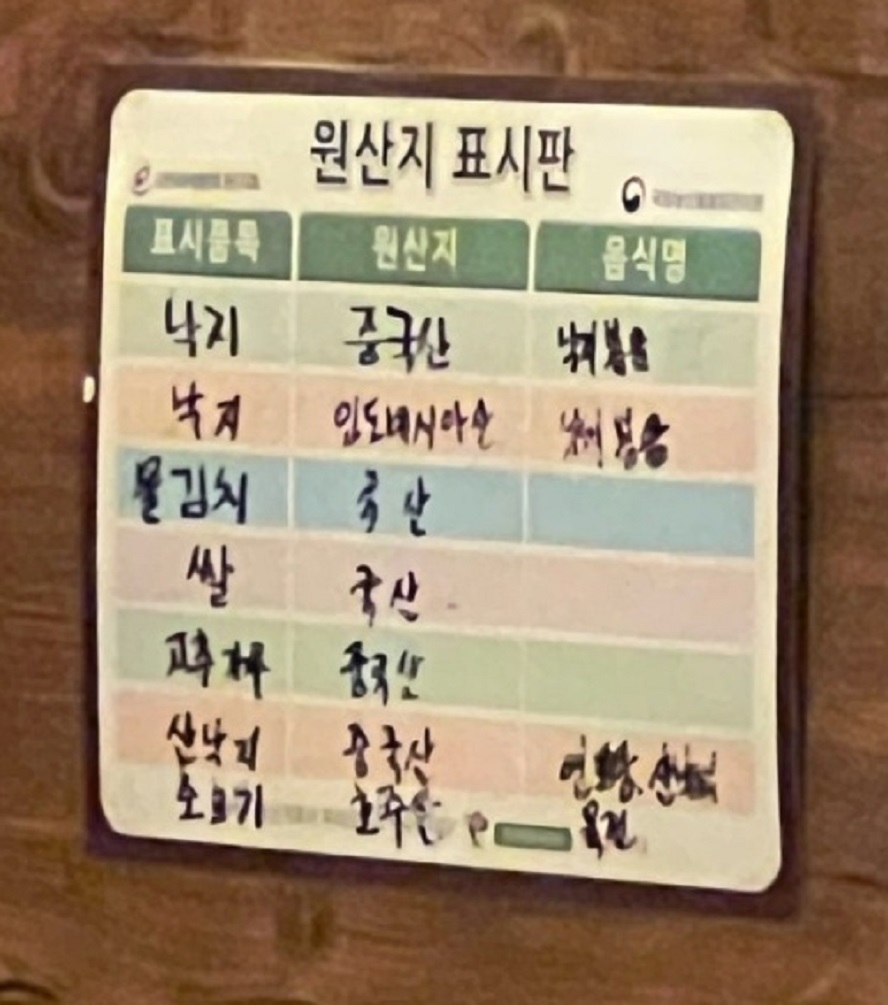 원산지 표시판
표시품목 원산지 음식명
낙지 중국산 낙지볶음
낙지 인도네시아산 낙지볶음
물김치 국산
쌀 국산
고추가루 중국산
산낙지 중국산 연포탕,
소고기 호주산 육전